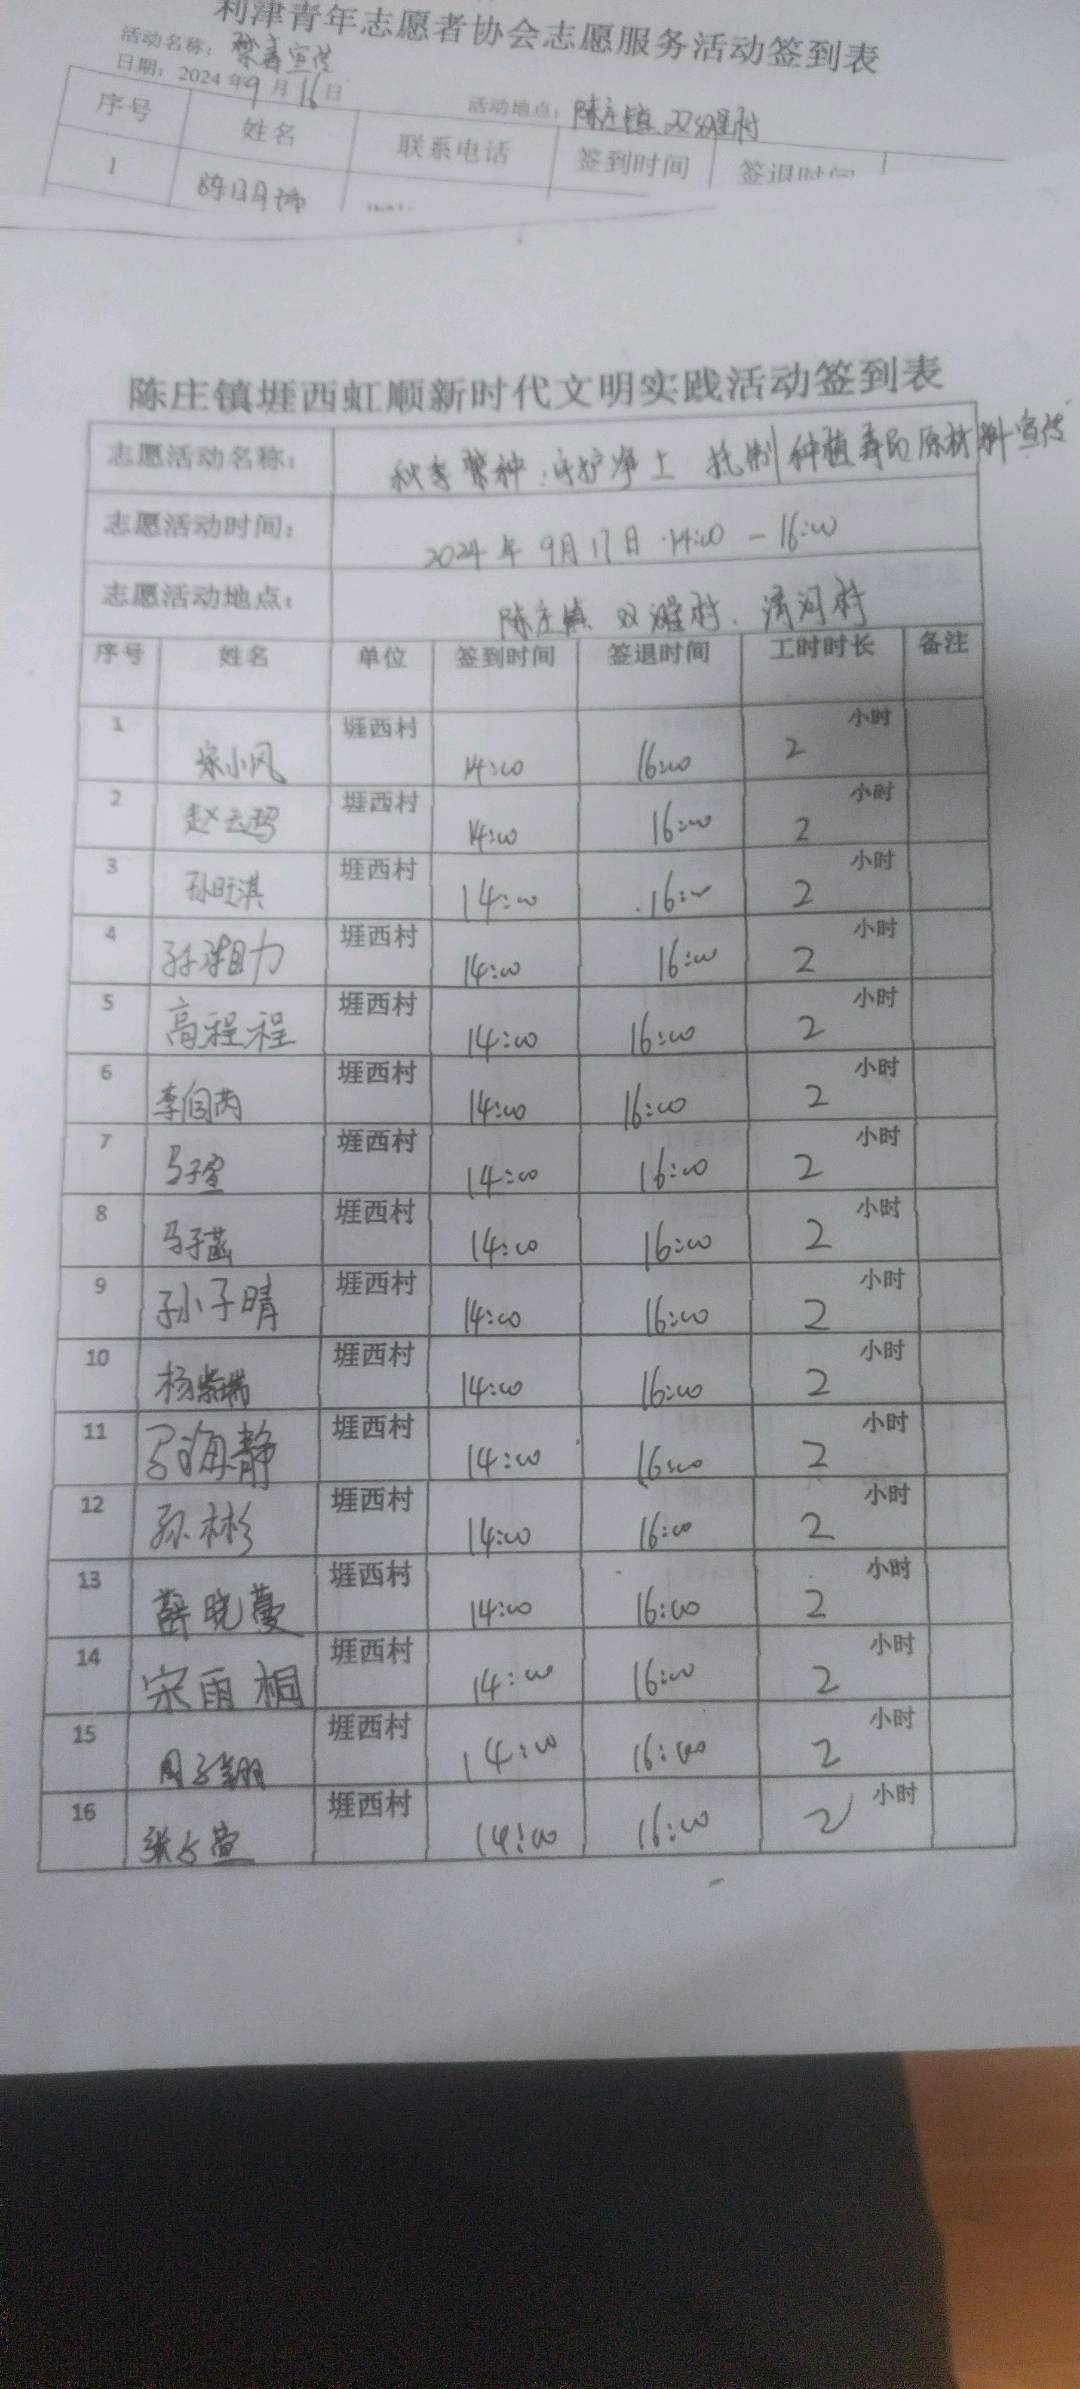 利津青年志愿者协会志愿服务活动签到表
活动名称: 禁毒宣传
日期: 2024年9月16日 活动地点: 陈庄镇 双滩村
序号 姓名 联系电话 签到时间 签退时间
1
陈庄镇堐西虹顺新时代文明实践活动签到表
志愿活动名称: 秋季禁种.守护净土 抵制种植毒品原材料宣传
志愿活动时间: 2024年9月17日 14:00-16:00
志愿活动地点: 陈庄镇 双滩村. 清河村
序号 姓名 单位 签到时间 签退时间 工时时长 备注
1 宋小风 堐西村 14:00 16:00 2小时
2 赵云 堐西村 14:00 16:00 2小时
3 孙旺淇 堐西村 14:00 16:00 2小时
4 孙 堐西村 14:00 16:00 2小时
5 高程程 堐西村 14:00 16:00 2小时
6 李 堐西村 14:00 16:00 2小时
7 马子萱 堐西村 14:00 16:00 2小时
8 马子菡 堐西村 14:00 16:00 2小时
9 孙子晴 堐西村 14:00 16:00 2小时
10 杨紫瑞 堐西村 14:00 16:00 2小时
11 马海静 堐西村 14:00 16:00 2小时
12 孙彬 堐西村 14:00 16:00 2小时
13 薛晓蔓 堐西村 14:00 16:00 2小时
14 宋雨桐 堐西村 14:00 16:00 2小时
15 周子翔 堐西村 14:00 16:00 2小时
16 张 堐西村 14:00 16:00 2小时